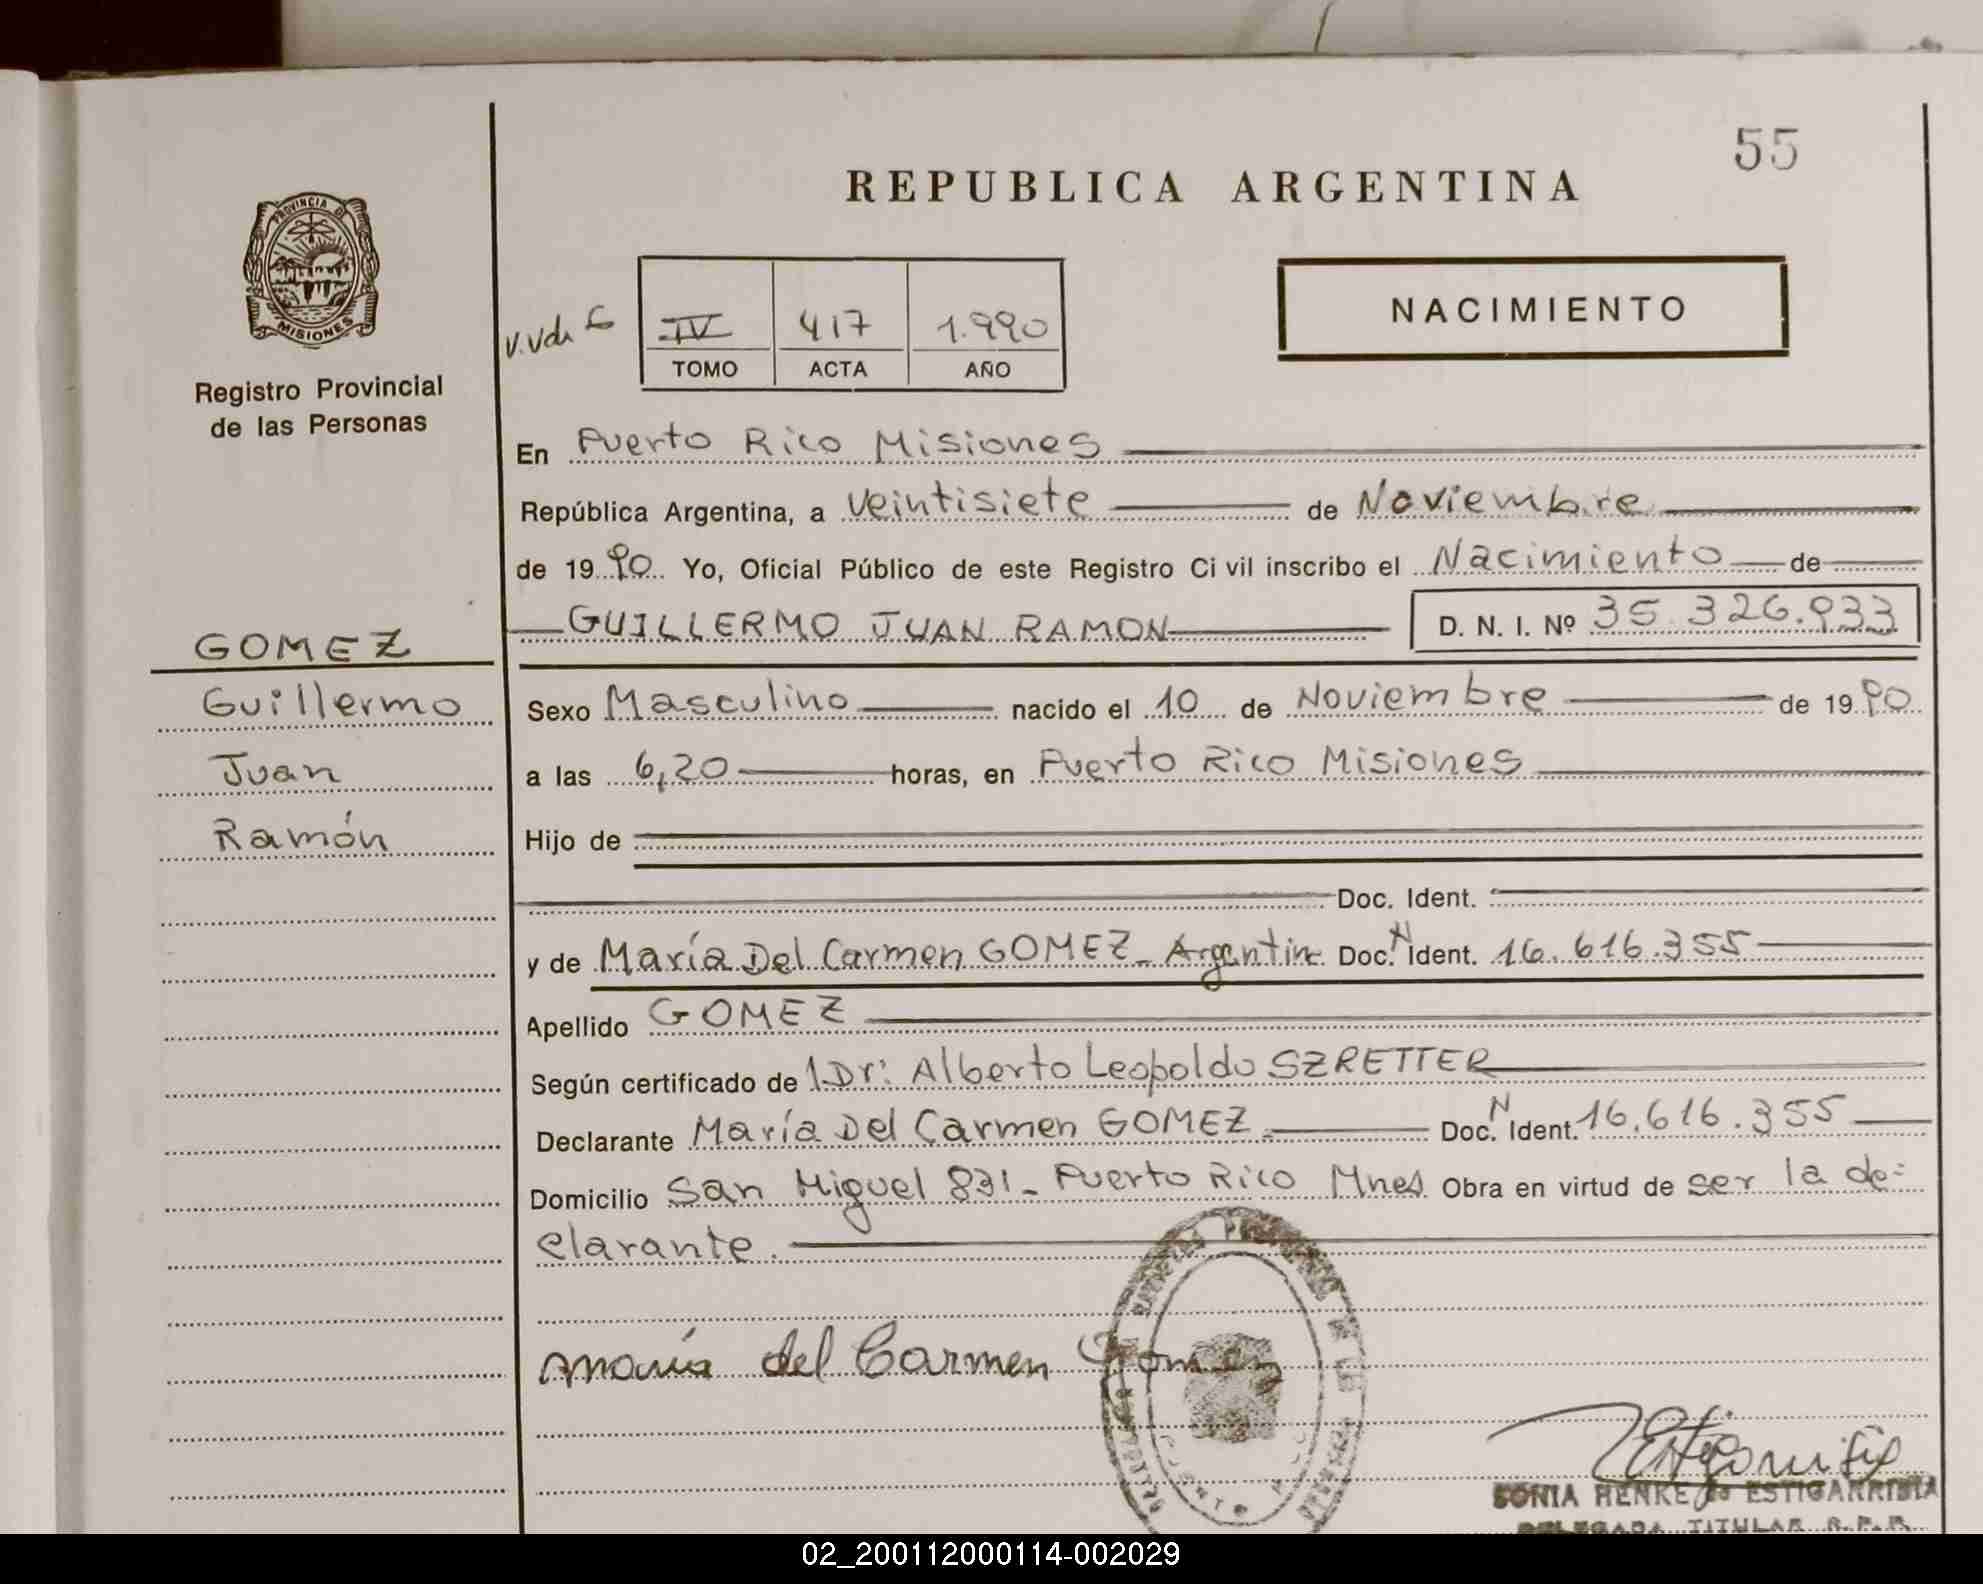 55
REPUBLICA ARGENTINA
PROVINCIA DE
MISIONES
Registro Provincial
de las Personas
IV 417 1.990
TOMO ACTA AÑO
NACIMIENTO
En Puerto Rico Misiones
República Argentina, a veintisiete de Noviembre
de 1990 Yo, Oficial Público de este Registro Civil inscribo el Nacimiento de
GUILLERMO JUAN RAMON D. N. I. Nº 35.326.933
GOMEZ
Guillermo
Juan
Ramón
Sexo Masculino nacido el 10 de Noviembre de 1990
a las 6,20 horas, en Puerto Rico Misiones
Hijo de
Doc. Ident.
y de María Del Carmen GOMEZ - Argentina Doc. N Ident. 16.616.355
Apellido GOMEZ
Según certificado de 1Dr: Alberto Leopoldo SZRETTER
Declarante María Del Carmen GOMEZ.- Doc. N Ident. 16.616.355
Domicilio San Miguel 831- Puerto Rico Mnes. Obra en virtud de ser la de-
clarante.
María del Carmen Gomez
SONIA HENKE de ESTIGARRIBIA
DELEGADA TITULAR R.P.P.
02_200112000114-002029